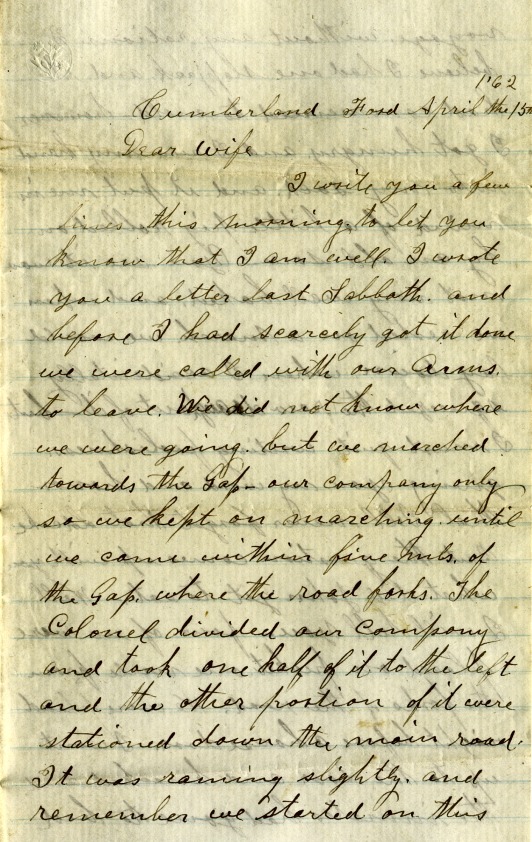 1862
Cumberland Ford April the 15th
Dear Wife
I write you a few
lines this morning to let you
know that I am well. I wrote
you a letter last Sabbath. and
before I had scarcely got it done
we were called with our Arms.
to leave. We did not know where
we were going. but we marched
towards the Gap - our company only
so we kept on marching until
we came within five mls. of
the Gap. where the road forks. The
Colonel divided our Company
and took one half of it to the left
and the other portion of it were
stationed down the main road.
It was raining slightly. and
remember we started on this